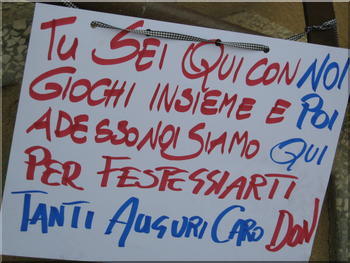 TU SEI QUI CON NOI
GIOCHI INSIEME E POI
ADESSO NOI SIAMO QUI
PER FESTEGGIARTI
TANTI AUGURI CARO DON